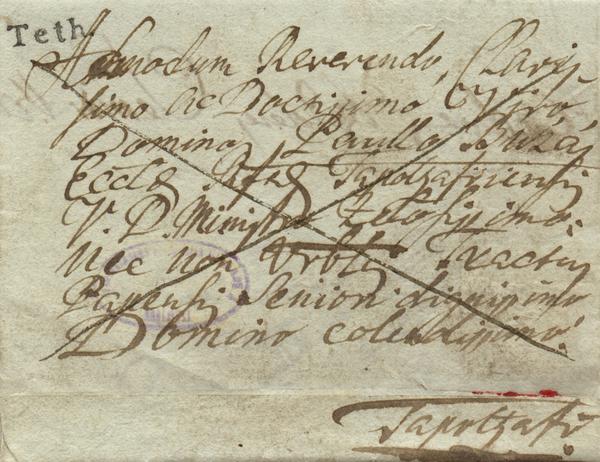 Teth.
Admodum Reverendo, Claris
simo ac Doctissimo Viro,
Domino Paullo Buzás
Eccles. Tapoltzafiensis
V. D. Ministro Zelosissimo:
nec non Tractus
Papensis Seniori dignissimo
Domino colendissimo.
Tapoltzafő